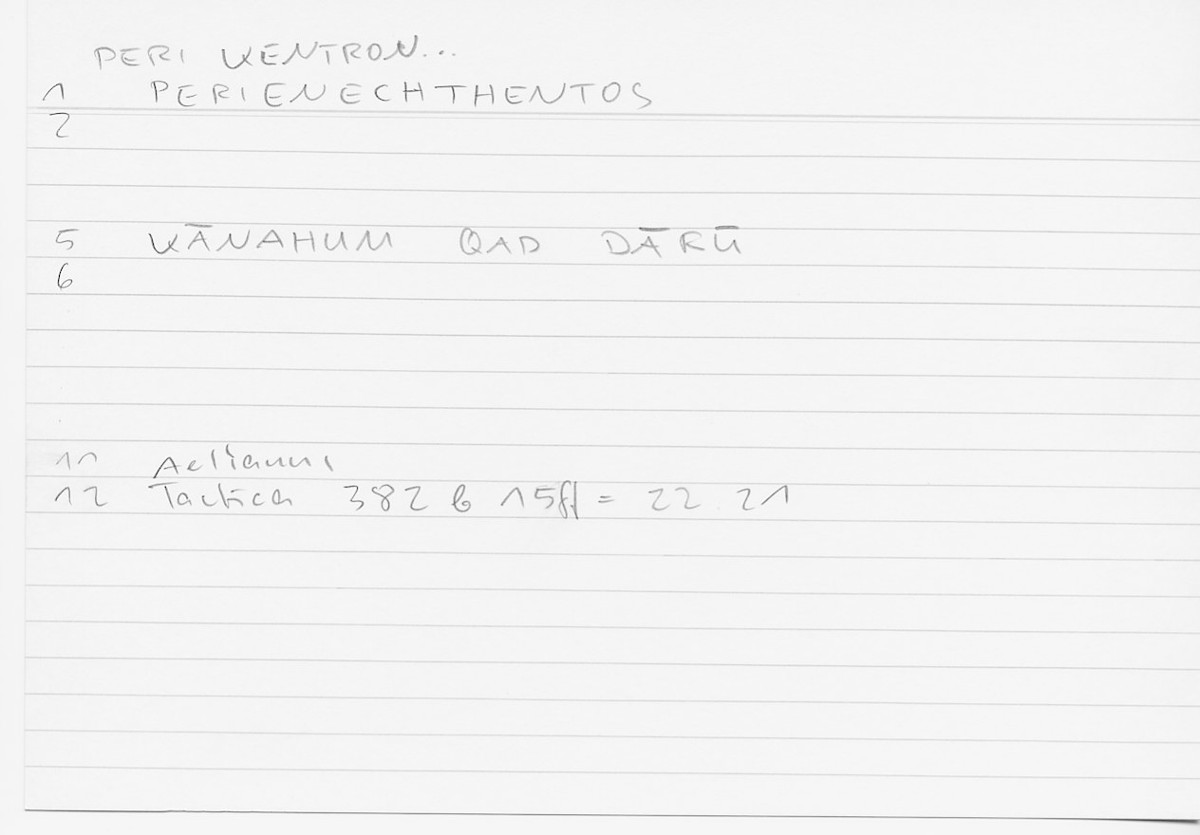 PERI KENTRON...
1 PERIENECHTHENTOS
2
5 KĀNAHUM QAD DĀRŪ
6
11 Aelianus
12 Tactica 382 b 15ff = 22 21